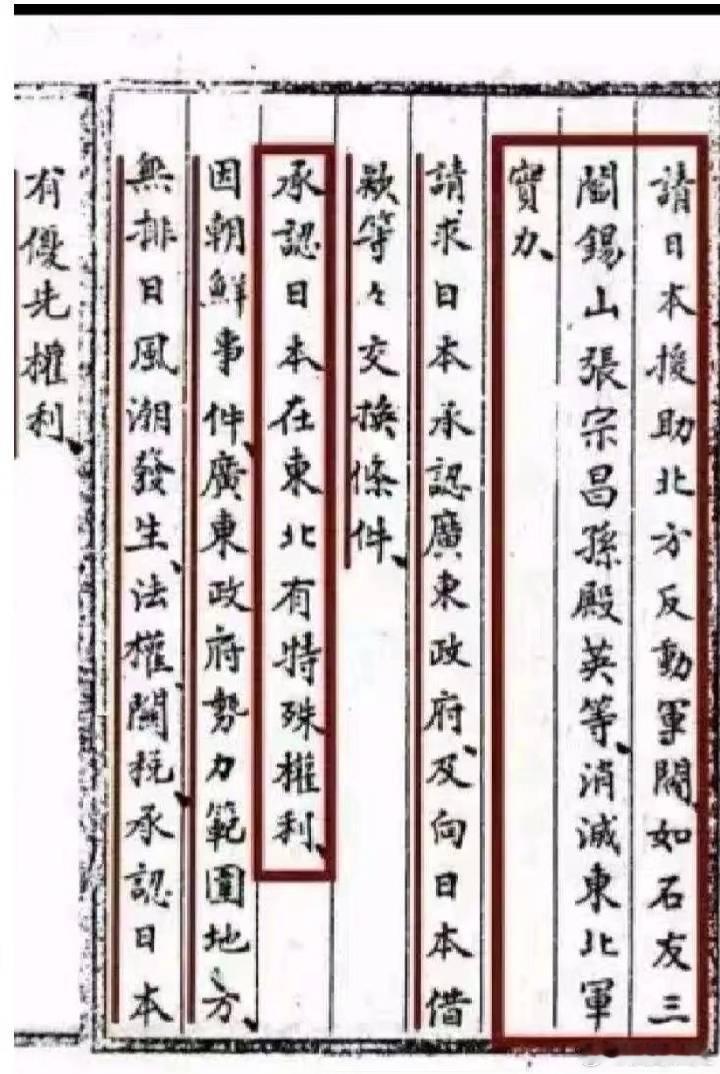 請日本援助北方反動軍閥、如石友三
閻錫山張宗昌孫殿英等、消滅東北軍
實力、
請求日本承認廣東政府、及向日本借
欵等々交換條件、
承認日本在東北有特殊權利、
因朝鮮事件、廣東政府勢力範圍地方、
無排日風潮發生、法權關稅、承認日本
有優先權利、